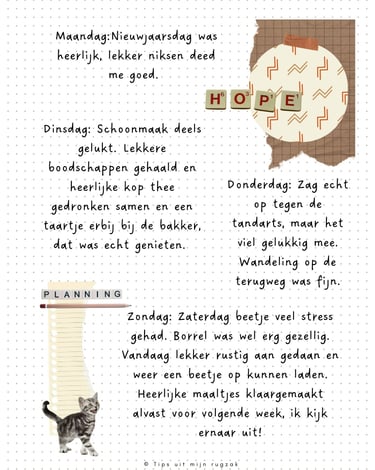 Maandag:Nieuwjaarsdag was
heerlijk, lekker niksen deed
me goed.
HOPE
Dinsdag: Schoonmaak deels
gelukt. Lekkere
boodschappen gehaald en
heerlijke kop thee
gedronken samen en een
taartje erbij bij de bakker,
dat was echt genieten.
Donderdag: Zag echt
op tegen de
tandarts, maar het
viel gelukkig mee.
Wandeling op de
terugweg was fijn.
PLANNING
Zondag: Zaterdag beetje veel stress
gehad. Borrel was wel erg gezellig.
Vandaag lekker rustig aan gedaan en
weer een beetje op kunnen laden.
Heerlijke maaltjes klaargemaakt
alvast voor volgende week, ik kijk
ernaar uit!
© Tips uit mijn rugzak